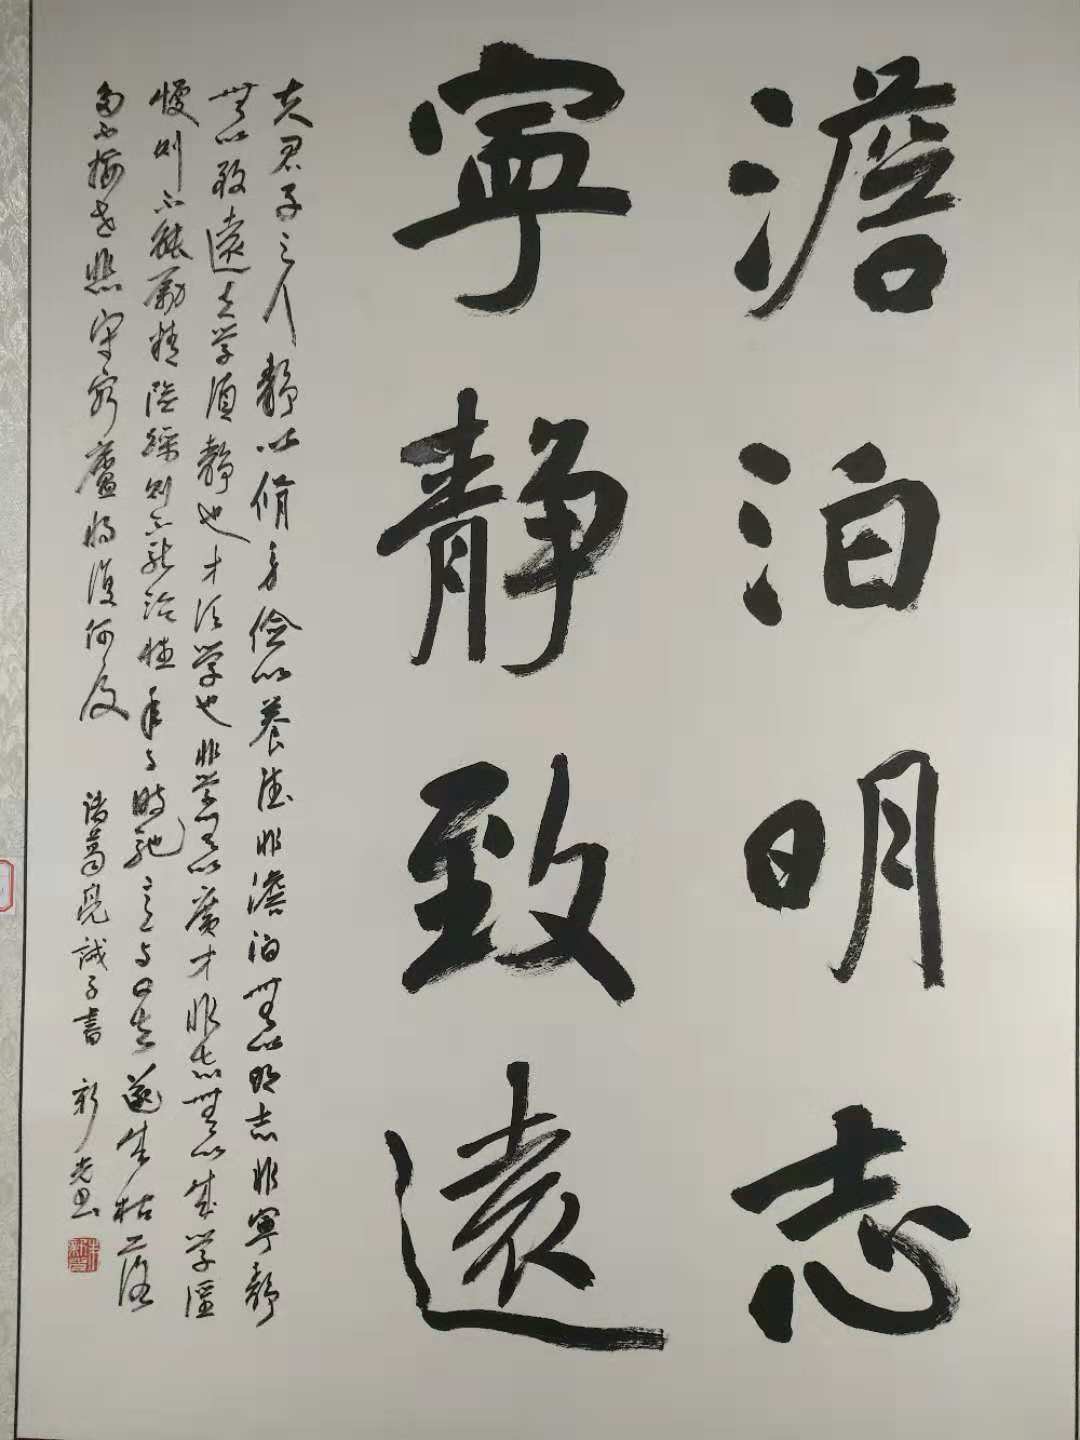 澹泊明志
寧靜致遠
夫君子之行靜以脩身儉以養德非澹泊無以明志非寧靜
無以致遠夫学須靜也才須学也非学無以廣才非志無以成学慆
慢則不能勵精險躁則不能治性年与時馳意与日去遂生枯落
多不接世悲守窮廬將復何及
諸葛亮誡子書 新光書